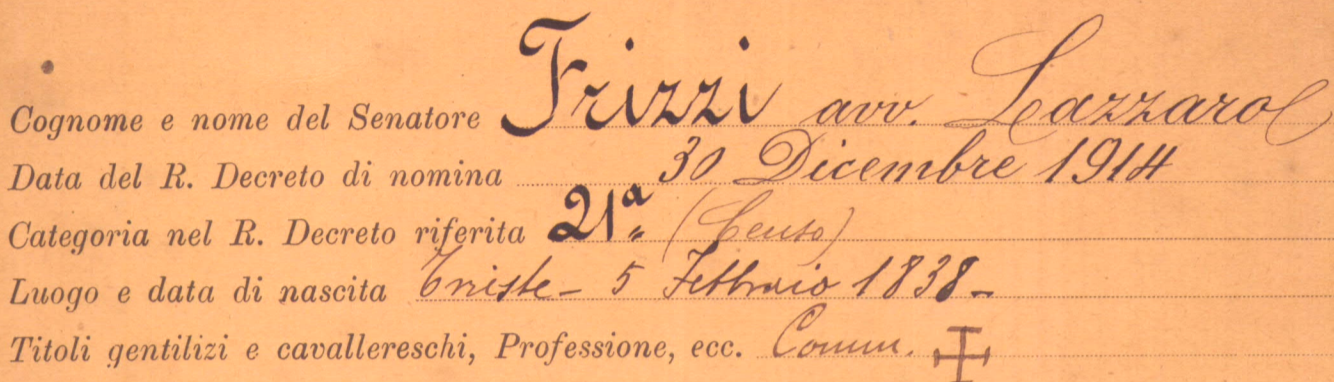 Cognome e nome del Senatore Frizzi avv. Lazzaro
Data del R. Decreto di nomina 30 Dicembre 1914
Categoria nel R. Decreto riferita 21ª (Censo)
Luogo e data di nascita Trieste - 5 Febbraio 1838 -
Titoli gentilizi e cavallereschi, Professione, ecc. Comm.